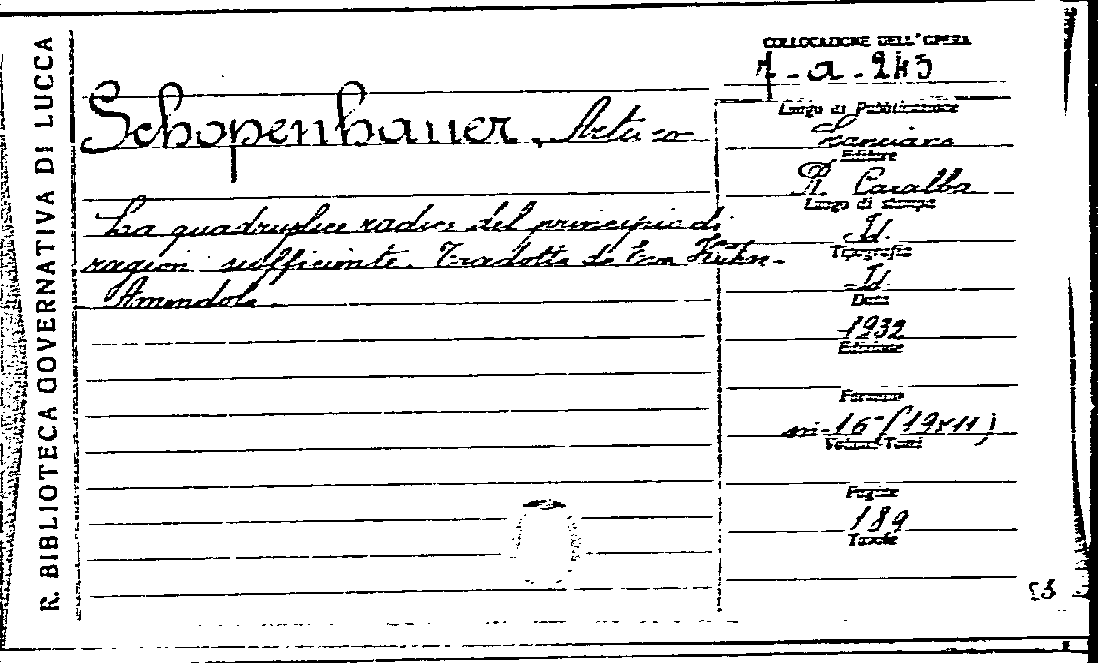 R. BIBLIOTECA GOVERNATIVA DI LUCCA
COLLOCAZIONE DELL'OPERA
7-a-245
Schopenhauer, Arturo
La quadruplice radice del principio di
ragion sufficiente. Tradotta da Eva Kühn-
Amendola.
Luogo di Pubblicazione
Lanciano
Editore
R. Caralba
Luogo di stampa
Id.
Tipografia
Id
Data
1932
Edizione
Formato
in-16-(19x11)
Volumi-Tomi
Pagine
189
Tavole